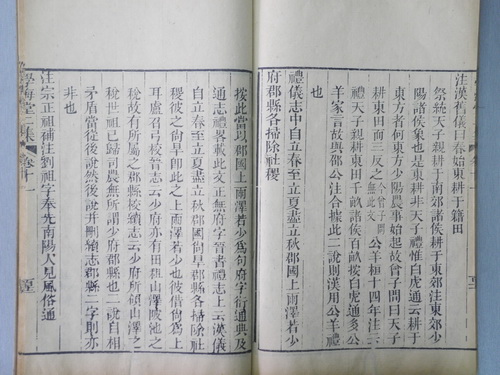 注漢舊儀曰春始東耕于籍田
祭統天子親耕于南郊諸侯耕于東郊注東郊少
陽諸侯象也是東耕非天子禮惟白虎通云耕于
東方者何東方少陽農事始起故曾子問曰天子
耕東田而三反之今曾子問無此文公羊桓十四年注
禮天子親耕東田千畝諸侯百畝按白虎通多公
羊家言故與邵公注合據此二說則漢用公羊禮
也
禮儀志中自立春至立夏盡立秋郡國上雨澤若少
府郡縣各掃除社稷
按此當以郡國上雨澤若少爲句府字衍通典及
通志禮畧載此文正無府字晉書禮志上云漢儀
自立春至立夏盡立秋郡國尙旱郡縣各掃除社
稷彼之尙旱卽此之上雨澤若少也彼借尙爲上
耳盧召弓校
云少府亦有田租山澤陂池之
稅故有所屬之郡縣校續志云少府所領山澤之
稅世祖已歸司農無所謂少府郡縣也二說自相
矛盾當從後說然後說并刪續志郡縣二字則亦
非也
注宗正祖補注劉祖字奉先南陽人見風俗通
學海堂二集
卷十一